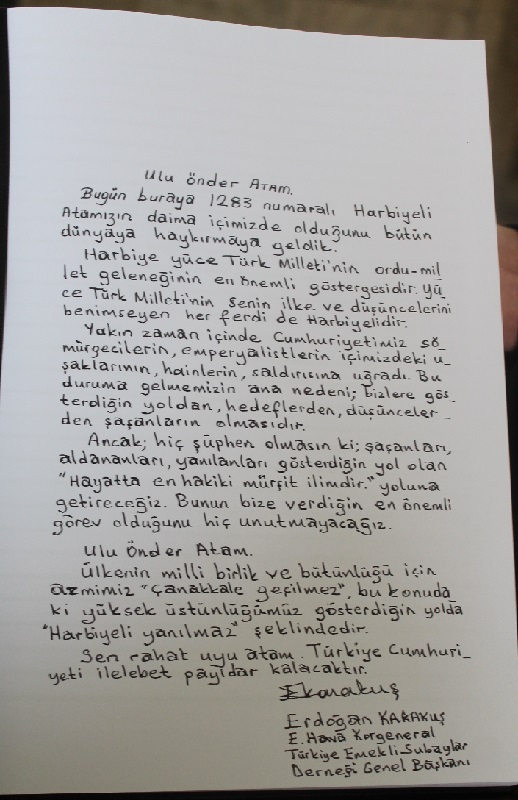 Ulu önder ATAM.
Bugün buraya 1283 numaralı Harbiyeli
Atamızın daima içimizde olduğunu bütün
dünyaya haykırmaya geldik.
Harbiye yüce Türk Milleti'nin ordu-mil_
let geleneğinin en önemli göstergesidir. Yü_
ce Türk Milleti'nin senin ilke ve düşüncelerini
benimseyen her ferdi de Harbiyelidir.
Yakın zaman içinde Cumhuriyetimiz sö_
mürgecilerin, emperyalistlerin içimizdeki u_
şaklarının, hainlerin, saldırısına uğradı. Bu
duruma gelmemizin ana nedeni; bizlere gös_
terdiğin yoldan, hedeflerden, düşünceler_
den şaşanların olmasıdır.
Ancak; hiç şüphen olmasın ki; şaşanları,
aldananları, yanılanları gösterdiğin yol olan
"Hayatta en hakiki mürşit ilimdir." yoluna
getireceğiz. Bunun bize verdiğin en önemli
görev olduğunu hiç unutmayacağız.
Ulu Önder Atam.
Ülkenin milli birlik ve bütünlüğü için
azmimiz "Çanakkale geçilmez", bu konuda
ki yüksek üstünlüğümüz gösterdiğin yolda
"Harbiyeli yanılmaz" şeklindedir.
Sen rahat uyu atam. Türkiye Cumhuri_
yeti ilelebet payidar kalacaktır.
EKarakuş
Erdoğan KARAKUŞ
E. Hava Korgeneral
Türkiye Emekli Subaylar
Derneği Genel Başkanı